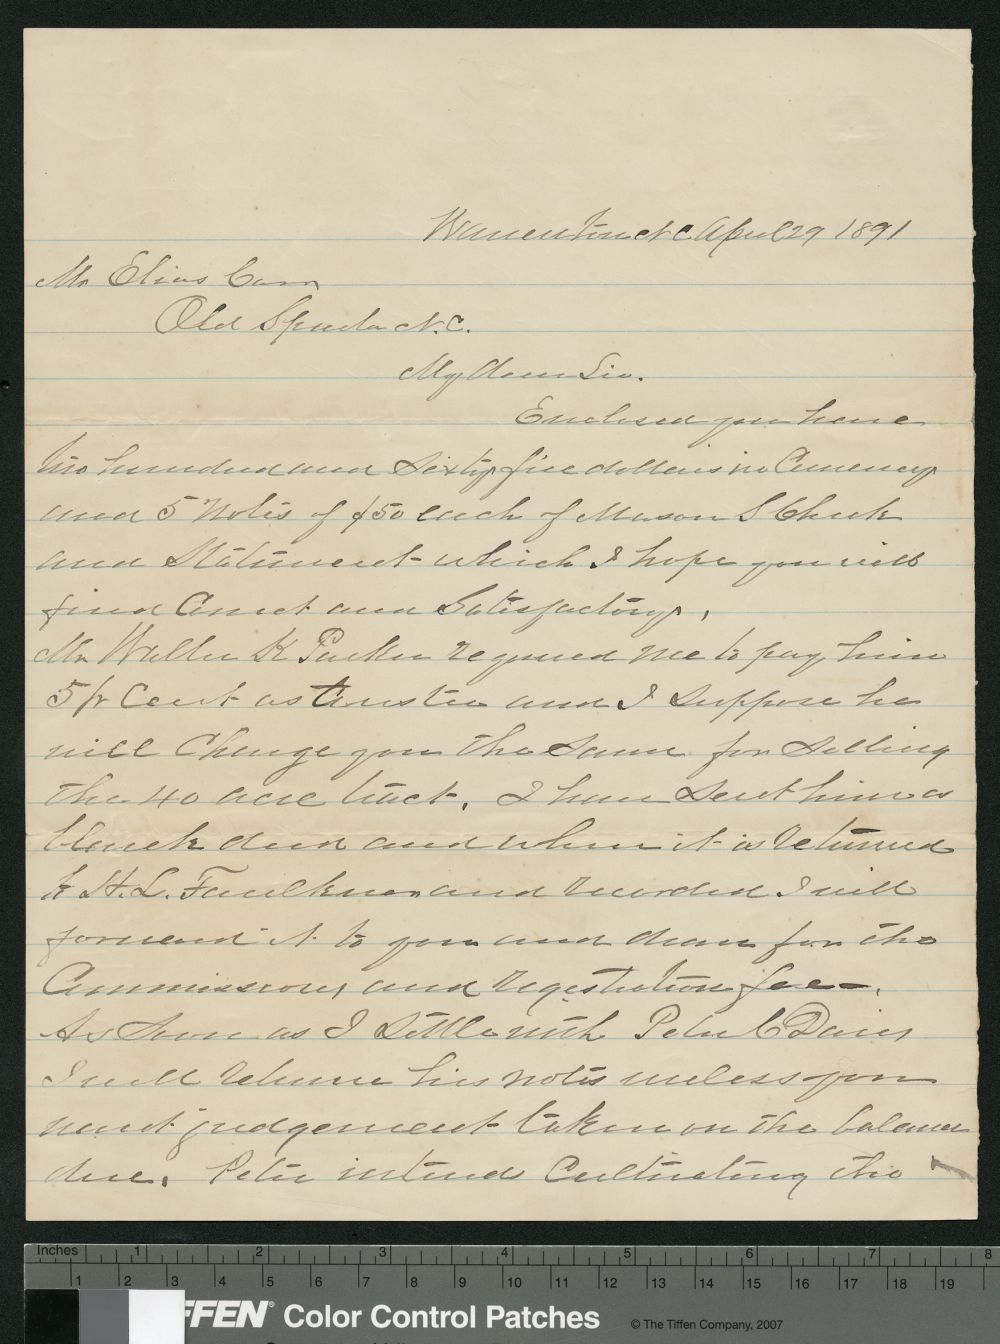 Warrenton N C April 29 1891
Mr Elias Carr
Old Sparta N.C.
My Dear Sir.
Enclosed you have
two hundred and Sixty five dollars in Currency
and 5 Notes of $50 each of Mason S Cheek
and Statement which I hope you will
find Correct and Satisfactory,
Mr Walter K Parker required me to pay him
5 pr Cent as trustee and I suppose he
will Charge you the Same for Selling
the 40 acre tract. I have Sent him a
blank deed and when it is returned
to H. L. Faulkner and recorded I will
forward it to you and draw for the
Commissions and registration fee—.
As Soon as I Settle with Peter C Davis
I will return his notes unless you
want judgement taken on the balance
due. Peter intends Cultivating the
Inches 1 2 3 4 5 6 7 8
1 2 3 4 5 6 7 8 9 10 11 12 13 14 15 16 17 18 19
FFEN® Color Control Patches © The Tiffen Company, 2007